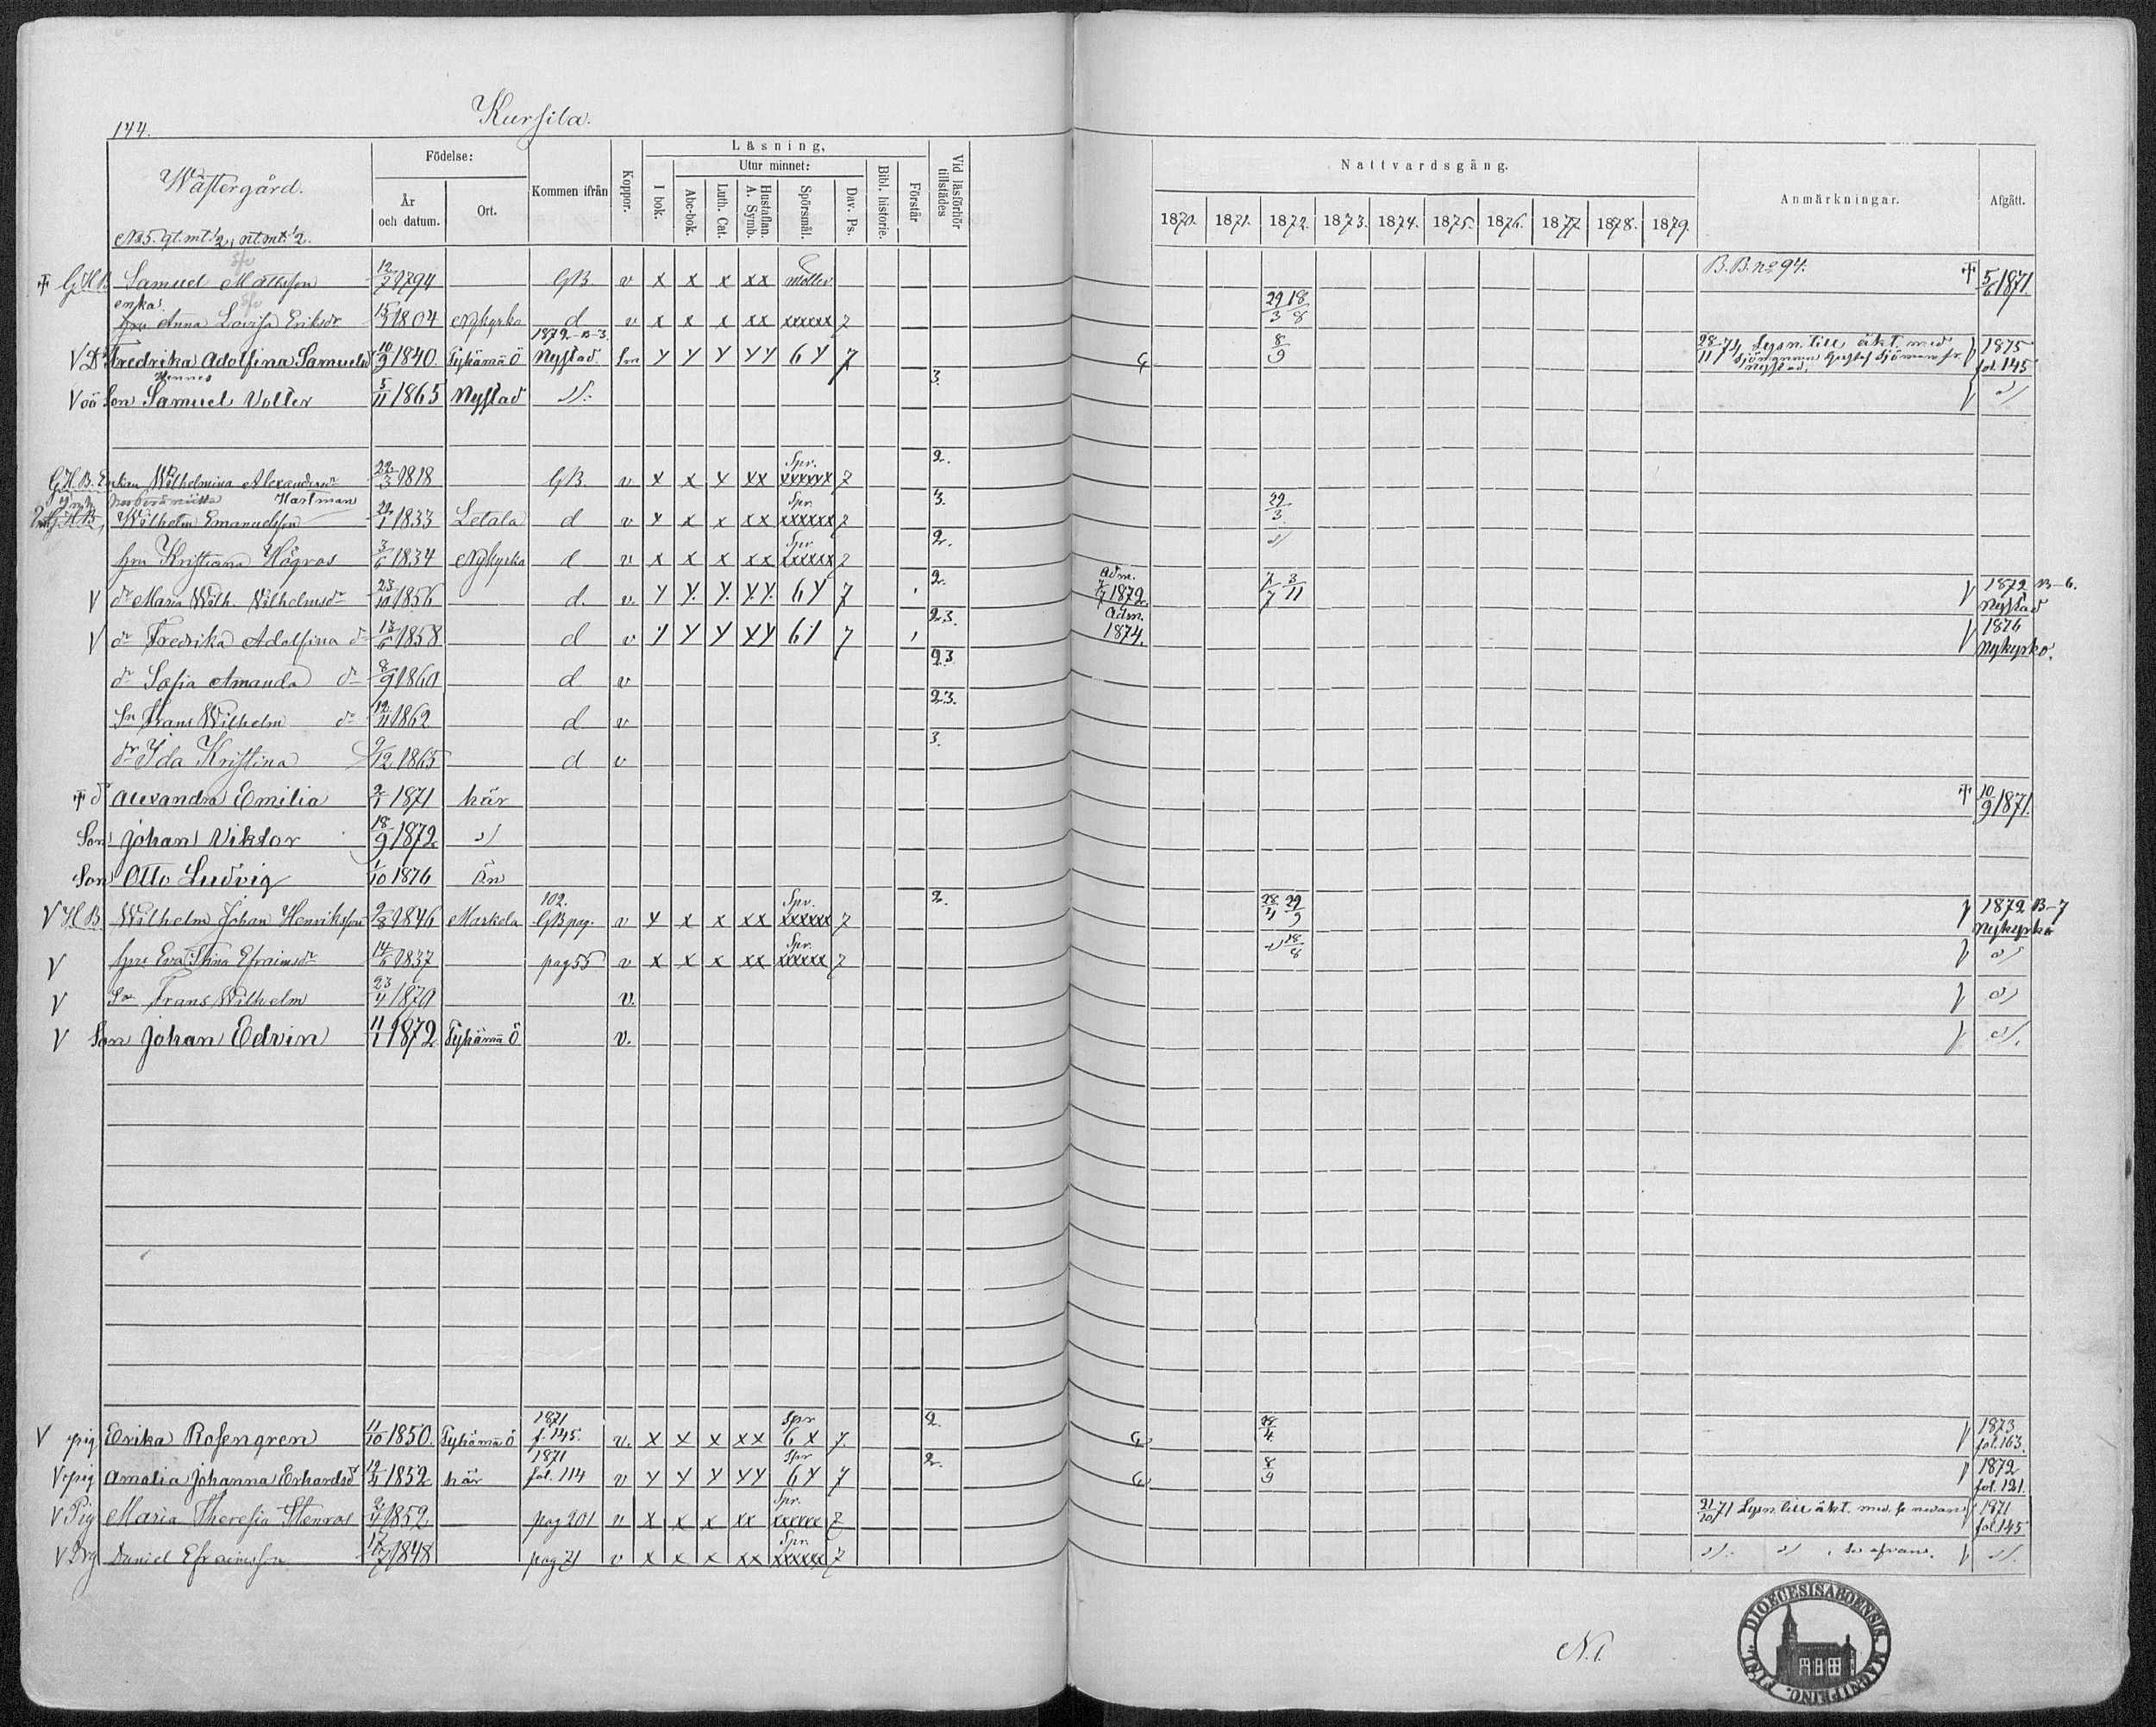 144.
Kursila.
Wästergård.
No 5. gt. mt. 1/2, nt. mt. 1/2.
Födelse:
År och datum.
Ort.
Kommen ifrån
Koppor.
Läsning,
I bok.
Utur minnet:
Abc-bok.
Luth. Cat.
Hustaflan. A. Symb.
Spörsmål.
Dav. Ps.
Bibl. historie.
Förstår
Vid läsförhör tillstädes
Nattvardsgång.
1870. 1871. 1872. 1873. 1874. 1875. 1876. 1877. 1878. 1879.
Anmärkningar.
Afgått.
G.H.B. Samuel Mattsson 12/2 1794 GB. v x x x xx B.B. no 94. † 5/6 1871.
enka
hru Anna Lovisa Eriksdr 1804 Nykyrko d v x x x xx xxxxxx 7 29/3 18/8
V Dr Fredrika Adolfina Samuelsdr 10/9 1840. Pyhämaa Ö 1872 B-3. Nystad. 6 7 8/9 28/11 74 Lysn. till äkt. med Sjömannen Gustaf Sjöman fr. Nystad. 1875 fol. 145
Hennes
V oä Son Samuel Volter 5/11 1865 Nystad 3.
G.H.B. Enkan Wilhelmina Alexandersdr 22/3 1818 GB v x x x xx Spr. xxxxxx 7 2.
Hartman
Wilhelm Emanuelsson 1833 Letala d v x x x xx Spr. xxxxxx 7 3. 29/3
hru Kristiana Högros 3/6 1834 Nykyrko d v x x x xx Spr. xxxxxx 7 2.
V dr Maria Wilh. Wilhelmsdr 23/10 1856 d. v. 6 7 2. Adm. 7/7 1872. 7/7 3/11 1872 B-6. Nystad
V dr Fredrika Adolfina dr 13/6 1858 d v 6 7 2.3. Adm. 1874. 1876 Nykyrko.
dr Sofia Amanda dr 8/9 1860 d v 2.3
Sn Frans Wilhelm dr 12/11 1862 d v 2.3.
dr Ida Kristina 9/12 1865 d v 3.
† dr Alexandra Emilia 2/1 1871 här † 10/9 1871.
Son Johan Viktor 18/9 1872
Son Otto Ludvig 1/10 1876 Ön
V H.B. Wilhelm Johan Henriksson 9/8 1846 Markela 102. GB pag. v x x x xx Spr. xxxxxx 7 2. 28/4 29/9 1872 B-7 Nykyrko
V hru Eva Stina Efraimsdr 14/6 1837 pag 55 v x x x xx Spr. xxxxxx 7 18/8
V Sn Frans Wilhelm 23/4 1870 v.
V Son Johan Edvin 11/1 1872 Pyhämaa Ö v.
V pig Erika Rosengren 11/10 1850. Pyhämaa Ö 1871 f. 145. v. x x x xx Spr 6 x 7. 2. 28/4 1873 fol. 163.
V pig Amalia Johanna Erhardsdr 12/4 1852 här 1871 fol. 114 v Spr 6 7 2. 8/9 1872 fol. 121.
V Pig Maria Theresia Stenros 2/4 1852 pag 201 v x x x xx Spr. xxxxxx 7 21/10 71 Lysn. till äkt. med se nedan 1871 fol. 145
V Drg Daniel Efraimsson 17/7 1848 pag 71 v x x x xx Spr. xxxxxx 7 Se ofvan.
N. 1.
DIOECESIS ABOENSIS. MAGNI PRINC. FINL.